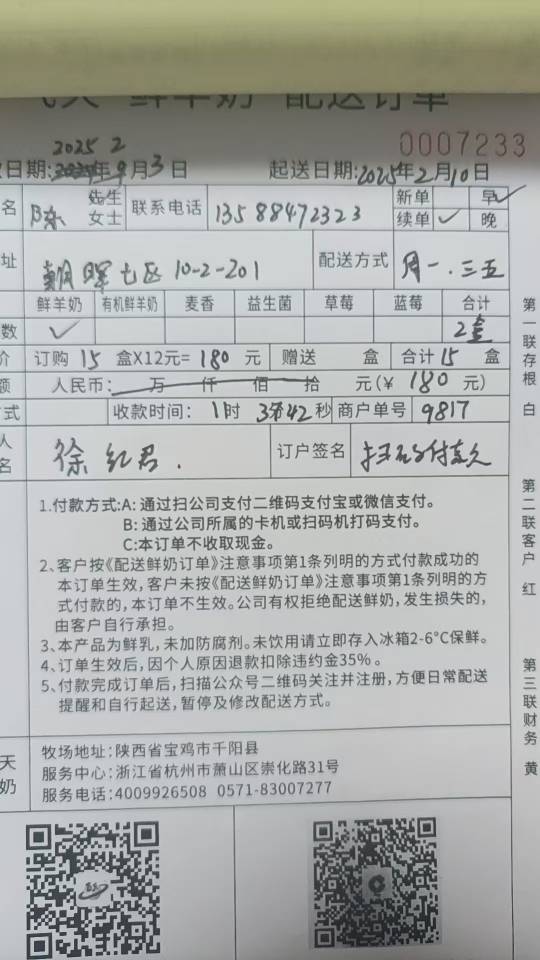 天 鲜羊奶 配送订单
0007233
日期: 2025年2月3日 起送日期: 2025年2月10日
名 陈 先生 女士 联系电话 13588472323 新单 续单 ✓ 早 ✓ 晚
址 朝晖七区 10-2-201 配送方式 周一.三五
鲜羊奶 有机鲜羊奶 麦香 益生菌 草莓 蓝莓 合计
数 ✓ 2盒
价 订购 15 盒X12元= 180 元 赠送 盒 合计 15 盒
额 人民币: 万 仟 佰 拾 元(¥ 180 元)
式 收款时间: 1时 37分42秒 商户单号 9817
人
名 徐红君. 订户签名 扫码付款
1.付款方式:A: 通过扫公司支付二维码支付宝或微信支付。
B: 通过公司所属的卡机或扫码机打码支付。
C:本订单不收取现金。
2、客户按《配送鲜奶订单》注意事项第1条列明的方式付款成功的
本订单生效,客户未按《配送鲜奶订单》注意事项第1条列明的方
式付款的,本订单不生效。公司有权拒绝配送鲜奶,发生损失的,
由客户自行承担。
3、本产品为鲜乳,未加防腐剂。未饮用请立即存入冰箱2-6°C保鲜。
4、订单生效后,因个人原因退款扣除违约金35%。
5、付款完成订单后,扫描公众号二维码关注并注册,方便日常配送
提醒和自行起送,暂停及修改配送方式。
天
奶
牧场地址:陕西省宝鸡市千阳县
服务中心:浙江省杭州市萧山区崇化路31号
服务电话:4009926508 0571-83007277
第一联存根 白
第二联客户 红
第三联财务 黄